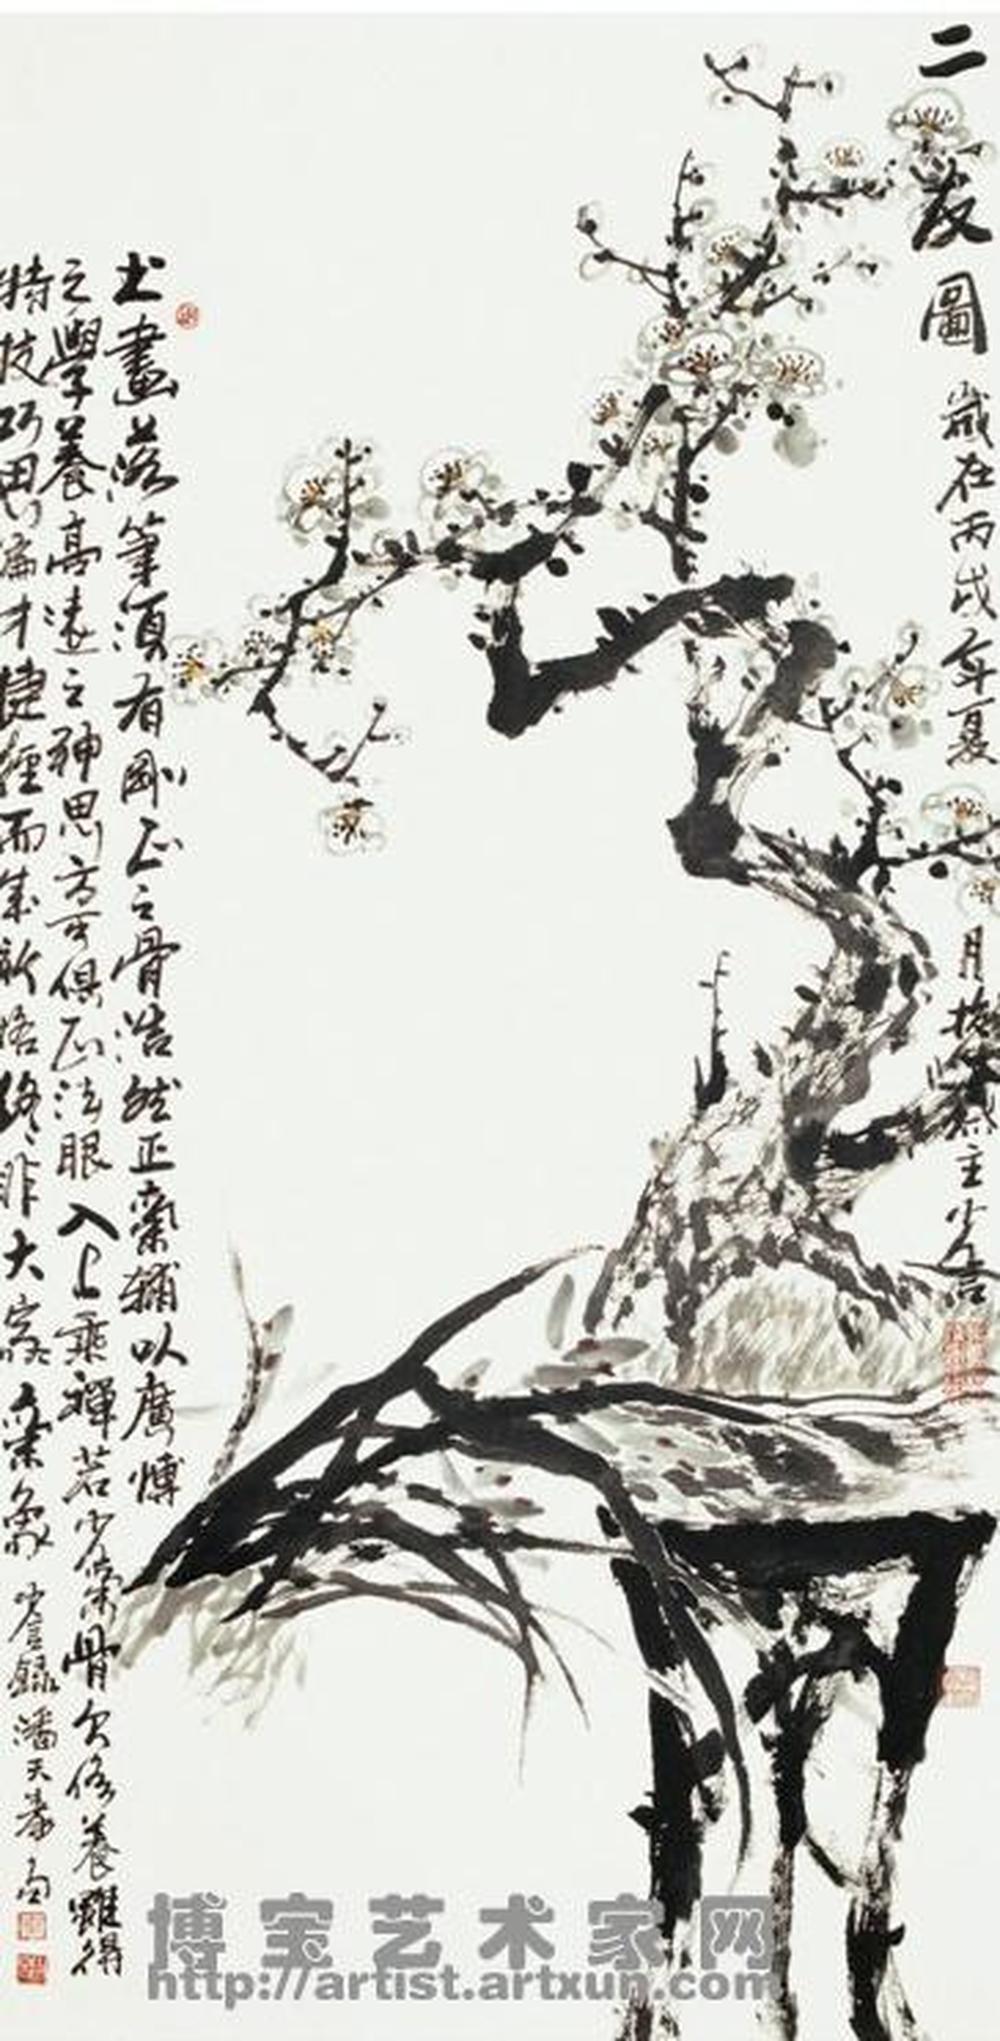 二友圖
歲在丙戌年夏月主少言
书畫落筆須有剛正之骨浩然正氣輔以廣博
之學養高遠之神思方可俱正法眼入上乘禪若少氣骨欠修養雖得
特技巧思偏才捷徑而成新格終非大家氣象
少言錄潘天壽句
博宝艺术家网
http://artist.artxun.com